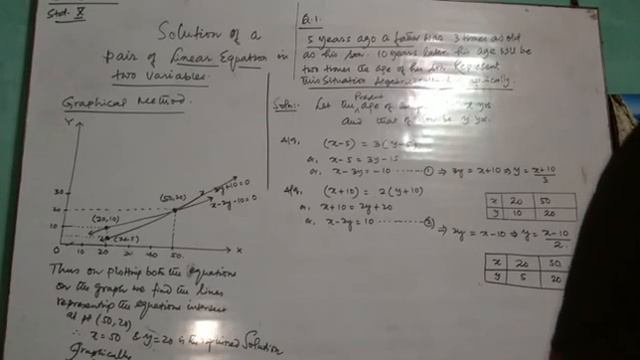 Std. X
Solution of a
pair of Linear Equation in
two variables.
Graphical Method.
Y
30
20
10
0
10 20 30 50
X
(50,20)
(20,10)
(20,5)
x-3y+10=0
x-2y-10=0
Thus on plotting both the equations
on the graph we find the lines
representing the equations intersect
at pt (50,20)
∴ x=50 & y=20 is the required Solution
Graphically
Ex.1.
5 years ago a father was 3 times as old
as his son. 10 years later his age will be
two times the age of his son. Represent
this situation
Soln:-
Let the Present age of x yrs
and that of son be y yrs.
A/Q, (x-5) = 3(y-5)
or, x-5 = 3y-15
or, x-3y = -10 ① ⇒ 3y = x+10 ⇒ y = x+10/3
A/Q, (x+10) = 2(y+10)
or, x+10 = 2y+20
or, x-2y = 10 ② ⇒ 2y = x-10 ⇒ y = x-10/2
x 20 50
y 10 20
x 20 50
y 5 20